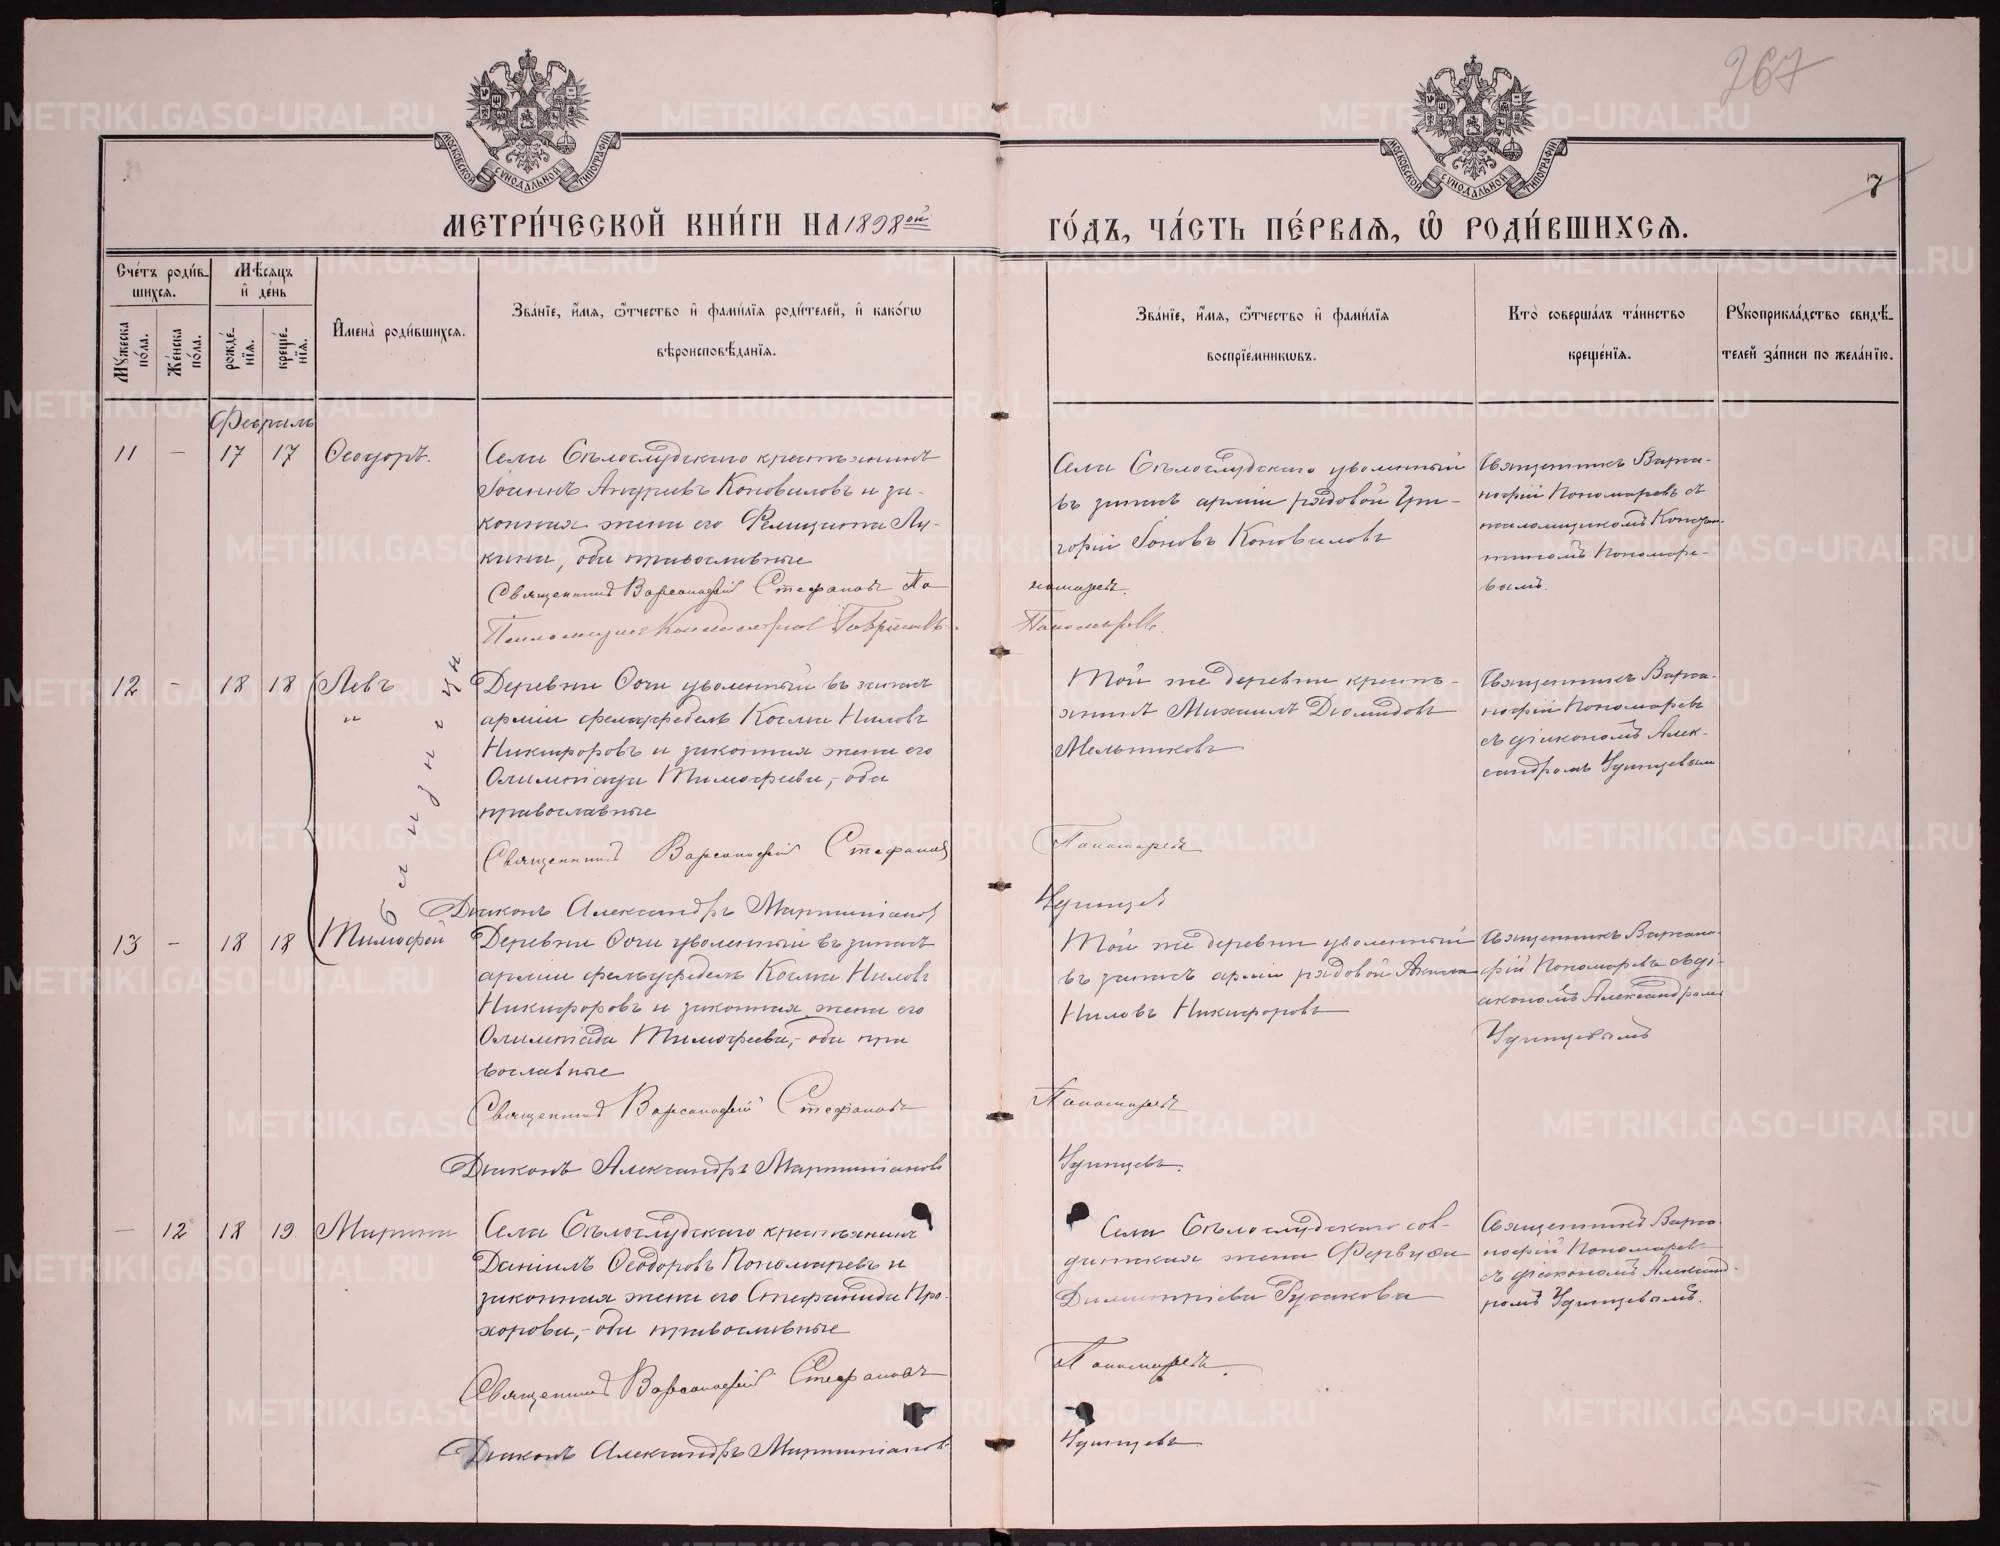 267
МОСКОВСКОЙ СѴНОДАЛЬНОЙ ТИПОГРАФІИ
МОСКОВСКОЙ СѴНОДАЛЬНОЙ ТИПОГРАФІИ
7
МЕТРИ́ЧЕСКОЙ КНИ́ГИ НА 1898ой
ГО́ДЪ, ЧА́СТЬ ПЕ́РВАѦ, Ѽ РОДИ́ВШИХСѦ.
Сче́тъ роди́в-
шихсѧ.
Мѣ́сѧцъ
и҆ де́нь
Мꙋ́жеска
по́ла.
Же́нска
по́ла.
рожде́-
нїѧ.
креще́-
нїѧ.
И҆мена̀ роди́вшихсѧ.
Зва́нїе, и҆́мѧ, ѻ҆́тчество и҆ фами́лїѧ роди́телей, и҆ како́гѡ
вѣроисповѣ́данїѧ.
Зва́нїе, и҆́мѧ, ѻ҆́тчество и҆ фами́лїѧ
воспрїе́мникѡвъ.
Кто̀ соверша́лъ та́инство
креще́нїѧ.
Рꙋкоприкла́дство свидѣ́-
телей за́писи по жела́нїю.
Февраль
11 – 17 17 Ѳеодоръ.
Села Бѣлослудскаго крестьянинъ
Іоаннъ Андреевъ Коноваловъ и за-
конная жена его Фелицата Лу-
кина, оба православные
Священникъ Варсонофій Стефановъ По
номаревъ.
Псаломщикъ Константинов Гавріиловъ
Пономаревъ.
Села Бѣлослудскаго уволенный
въ запасъ арміи рядовой Гри-
горій Іоновъ Коноваловъ
Священникъ Варсо-
нофій Пономаревъ съ
псаломщикомъ Констан-
тиномъ Пономаре-
вымъ.
12 – 18 18 Левъ
и
близнецы
Деревни Очи уволенный въ запасъ
арміи фельдфебель Косма Ниловъ
Никифоровъ и законная жена его
Олимпіада Тимофеева,- оба
православные
Священникъ Варсонофій Стефановъ
Пономаревъ
Діаконъ Александръ Мартиніановъ
Удинцевъ
Той же деревни кресть-
янинъ Михаилъ Діомидовъ
Мельниковъ
Священникъ Варсо-
нофій Пономаревъ
съ діакономъ Алек-
сандромъ Удинцевым
13 – 18 18 Тимофей
Деревни Очи уволенный въ запасъ
арміи фельдфебель Косма Ниловъ
Никифоровъ и законная жена его
Олимпіада Тимофеева,- оба пра
вославные
Священникъ Варсонофій Стефановъ
Пономаревъ
Діаконъ Александръ Мартиніановъ
Удинцевъ.
Той же деревни уволенный
въ запасъ арміи рядовой
Ниловъ Никифоровъ
Священникъ Варсоно-
фій Пономаревъ съ ді-
акономъ Александромъ
Удинцевымъ
– 12 18 19 Марина
Села Бѣлослудскаго крестьянинъ
Даніилъ Ѳеодоровъ Пономаревъ и
законная жена его Стефанида Про-
хорова,- оба православные
Священникъ Варсонофій Стефановъ
Пономаревъ.
Діаконъ Александръ Мартиніановъ
Удинцевъ
Села Бѣлослудскаго сол-
датская жена
Димитріева Русакова
Священникъ Варсо-
нофій Пономаревъ
съ діакономъ Александ-
ромъ Удинцевымъ.
METRIKI.GASO-URAL.RU